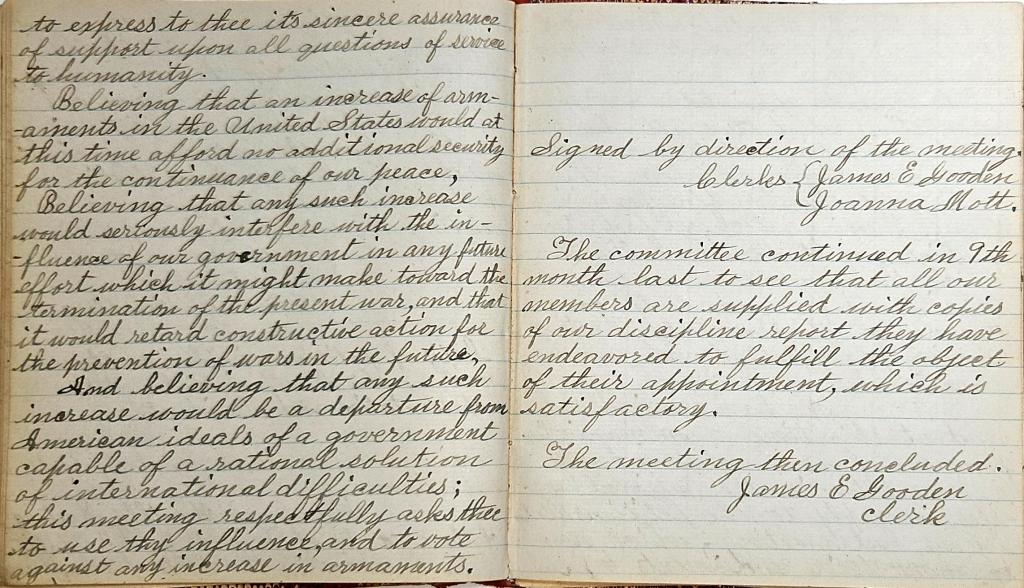 to express to thee its sincere assurance
of support upon all questions of service
to humanity.
Believing that an increase of arm-
-aments in the United States would at
this time afford no additional security
for the continuance of our peace,
Believing that any such increase
would seriously interfere with the in-
-fluence of our government in any future
effort which it might make toward the
termination of the present war, and that
it would retard constructive action for
the prevention of wars in the future,
And believing that any such
increase would be a departure from
American ideals of a government
capable of a rational solution
of international difficulties;
this meeting respectfully asks thee
to use thy influence, and to vote
against any increase in armaments.
Signed by direction of the meeting.
Clerks { James E Gooden
Joanna Mott.
The committee continued in 9th
month last to see that all our
members are supplied with copies
of our discipline report they have
endeavored to fulfill the object
of their appointment, which is
satisfactory.
The meeting then concluded.
James E Gooden
clerk